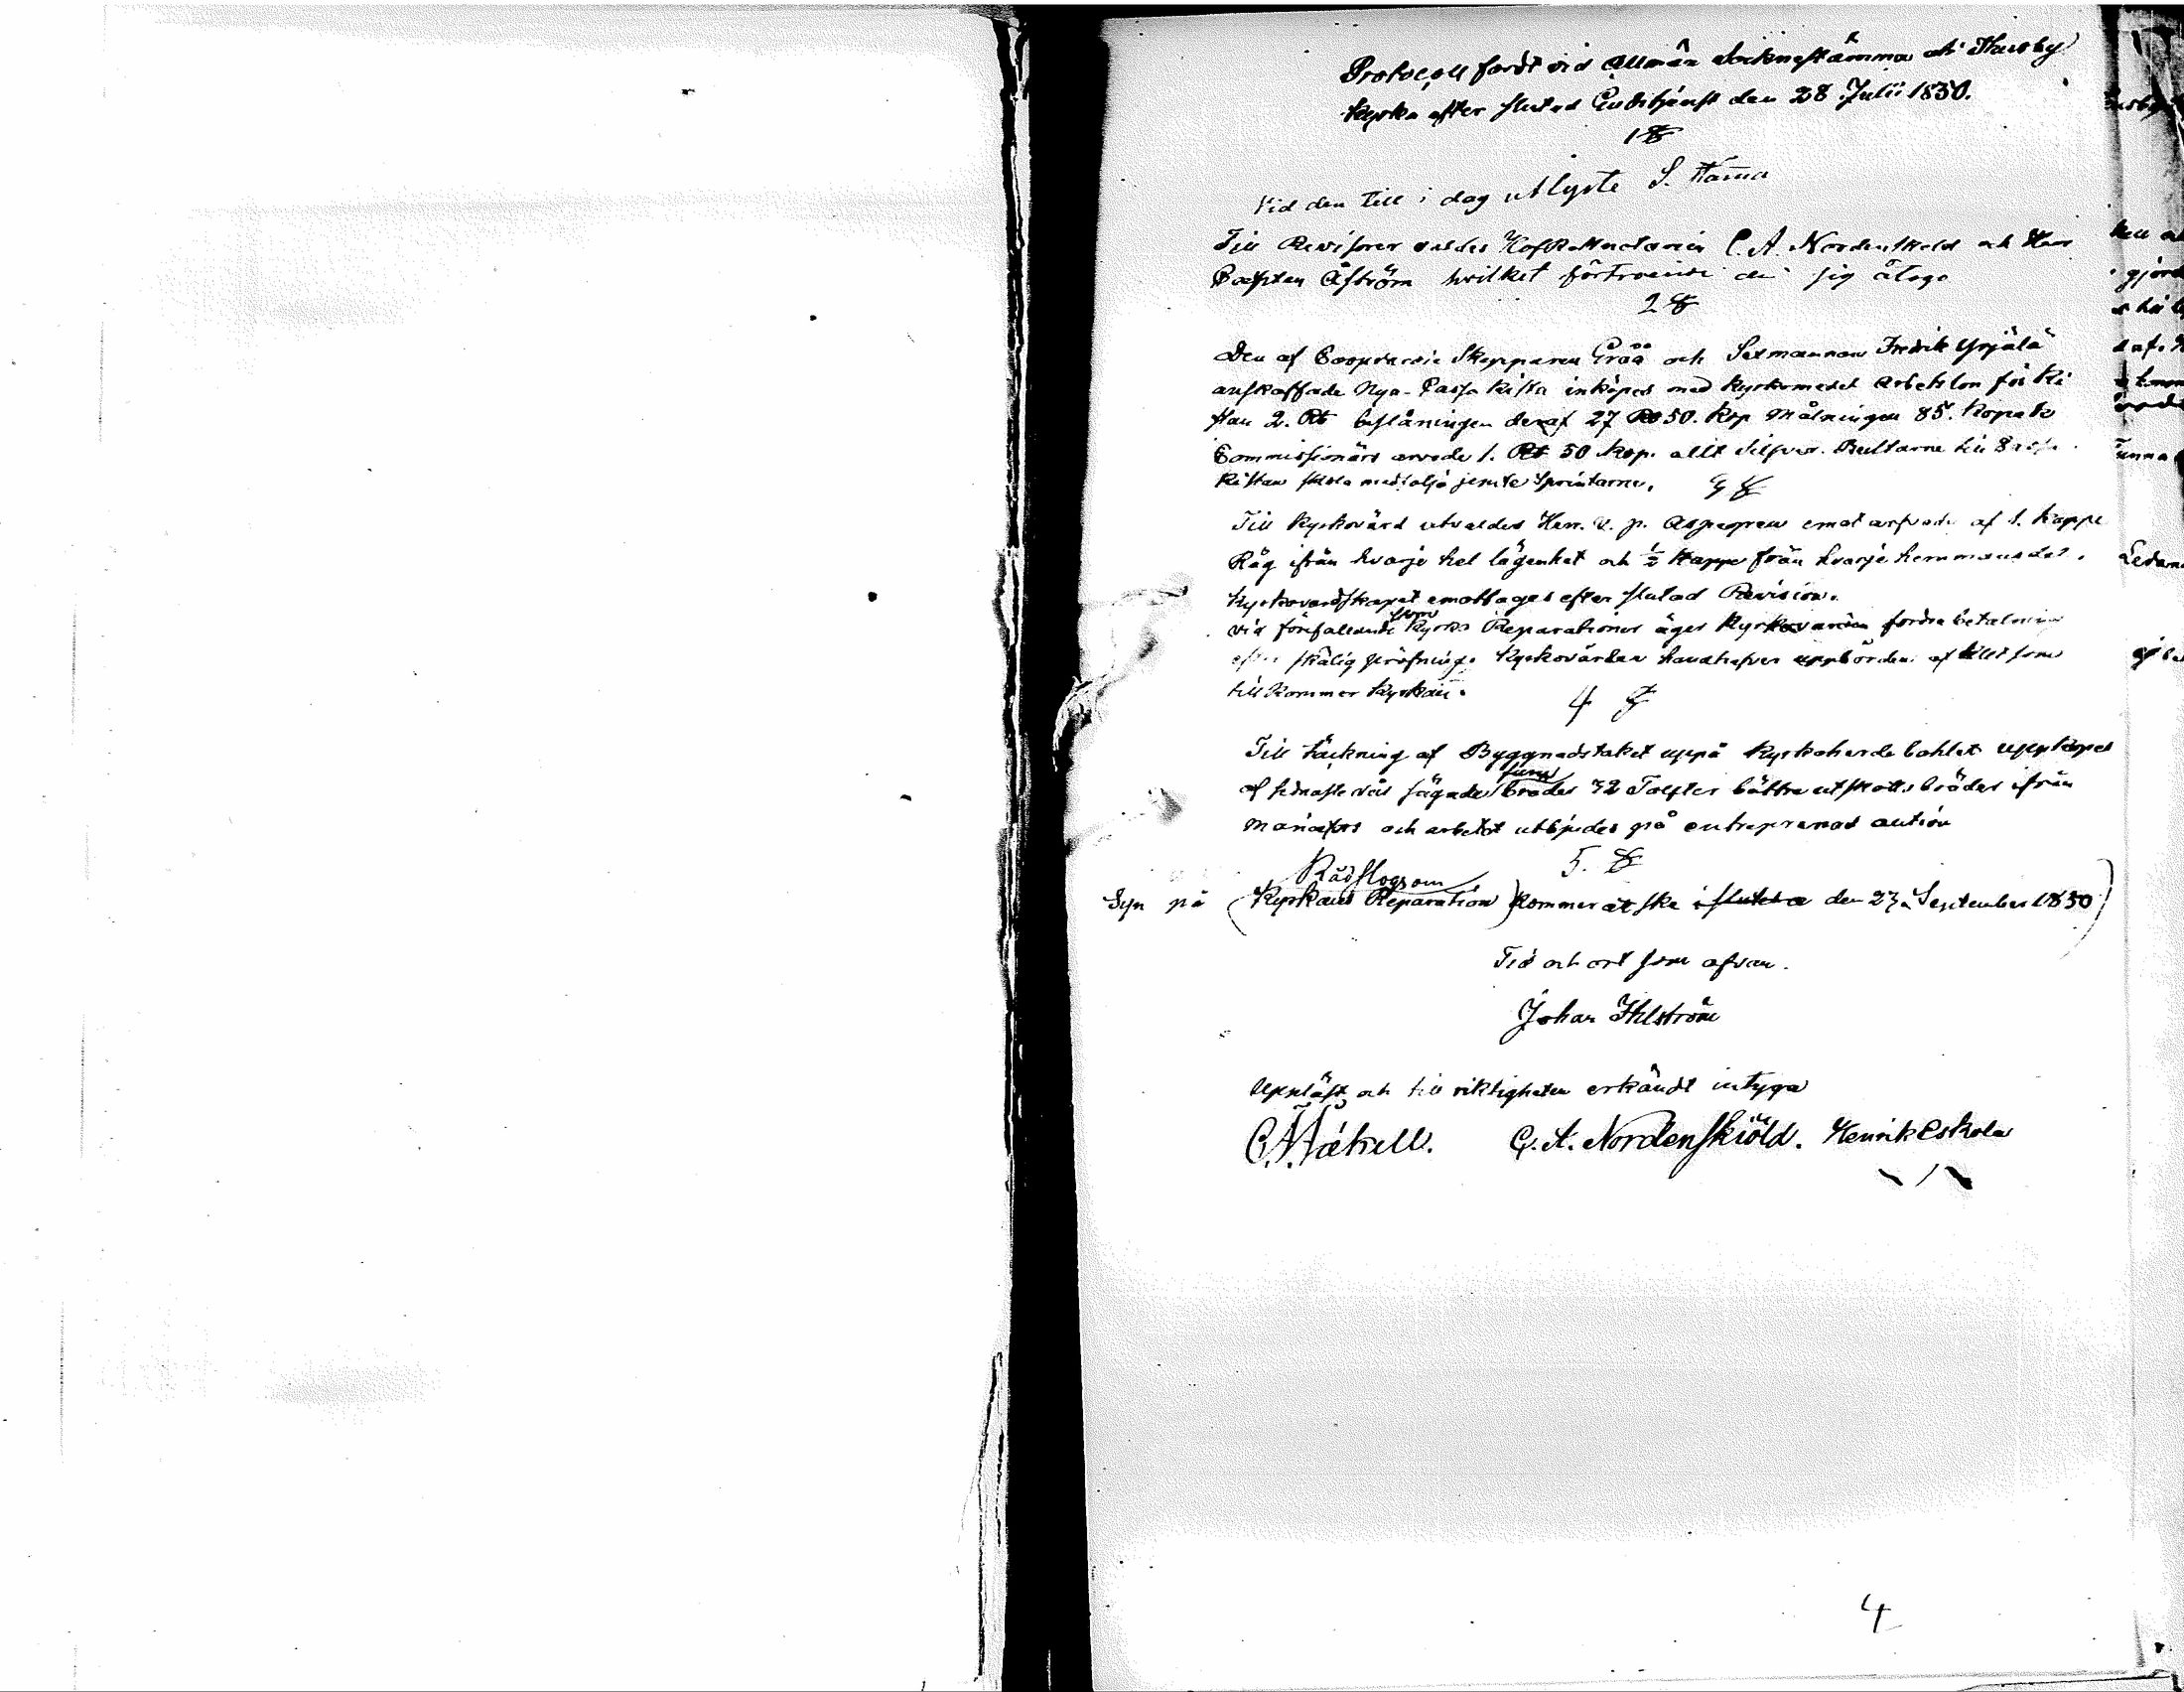 Protocoll fördt vid Allmän Socknestämma uti Thusby
Kyrka efter slutad Gudstjenst den 28 Julii 1850.
1 §
Vid den till i dag utlyste S. stäma
Till Revisorer valdes Hofkamuctarien C. A. Nordenskold och Herr
Capten Åström hvilket förtroende de sig åtogo
2 §
Den af Coopvardie Skepparen Gråå och Sexmannen Fredrik Yrjälä
anskaffade Nya Cassa Kista inköpes med kyrkomedel arbetslön för Ki
stan 2. Rb beslåningen deraf 27 Rb 50. Kop Målningen 85. Kopek
Commissionärs arvode 1. Rb 50 Kop. allt Silfver. Bultarne till Cassa
Kistan skola medfölja jemte Sprintarne. 3 §
Till Kyrkovärd utvaldes Herr. V. p. Aspegren emot arfvode af 1. kappe
Råg ifrån hvarje hel lägenhet och ½ kappe från hvarje hemmansdel.
Kyrkovardskapet emottages efter slutad Revision.
som
vid förefallande Kyrko Reparationer äger Kyrkovärden fordra betalning
efter skälig pröfning. Kyrkovärden handhafver uppbörden af allt som
tillkommer Kyrkan.
4 §
Till täckning af Byggnadstaket uppå Kyrkoherde bohlet uppköpes
af finaste väl sågade bräder 72 Tolfter bättre utskotts bräder ifrån
och arbetet utbjudes på entreprenad aution
5. §
Rådslag om
Syn på (Kyrkans Reparation) Kommer at ske i slutet a den 23 September 1850)
Tid och ort som ofvan.
Johan Ihlström
Uppläst och till riktigheten erkändt intyga
C. A. Nordenskiöld. Henrik Eskola
4